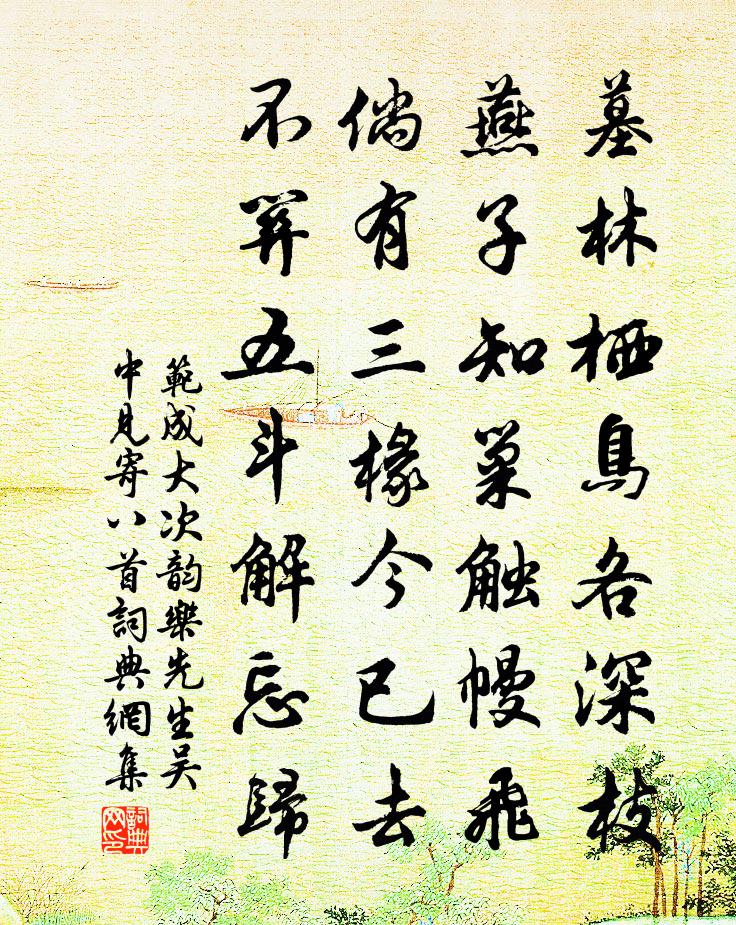 墓林栖鳥各深枝
燕子知巢触幔飛
倘有三椽今已去
不笄五斗解忘歸
範成大次韵樂先生吴
中見寄八首詞典網集
詞典
网印